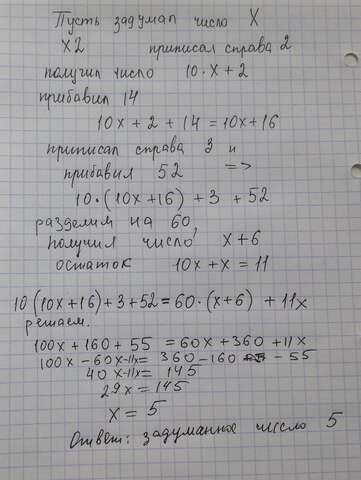 Пусть задумал число X
X2 приписал справа 2
получил число 10·X + 2
прибавил 14
10x + 2 + 14 = 10x+16
приписал справа 3 и
прибавил 52 =>
10·(10x+16) + 3 + 52
разделим на 60,
получил число x+6
остаток 10x+x = 11
10(10x+16)+3+52=60·(x+6) + 11x
решаем.
100x+160+55 =60x+360+11x
100x-60x-11x= 360-160 - 55
40x-11x= 145
29x=145
x = 5
Ответ: задуманное число 5